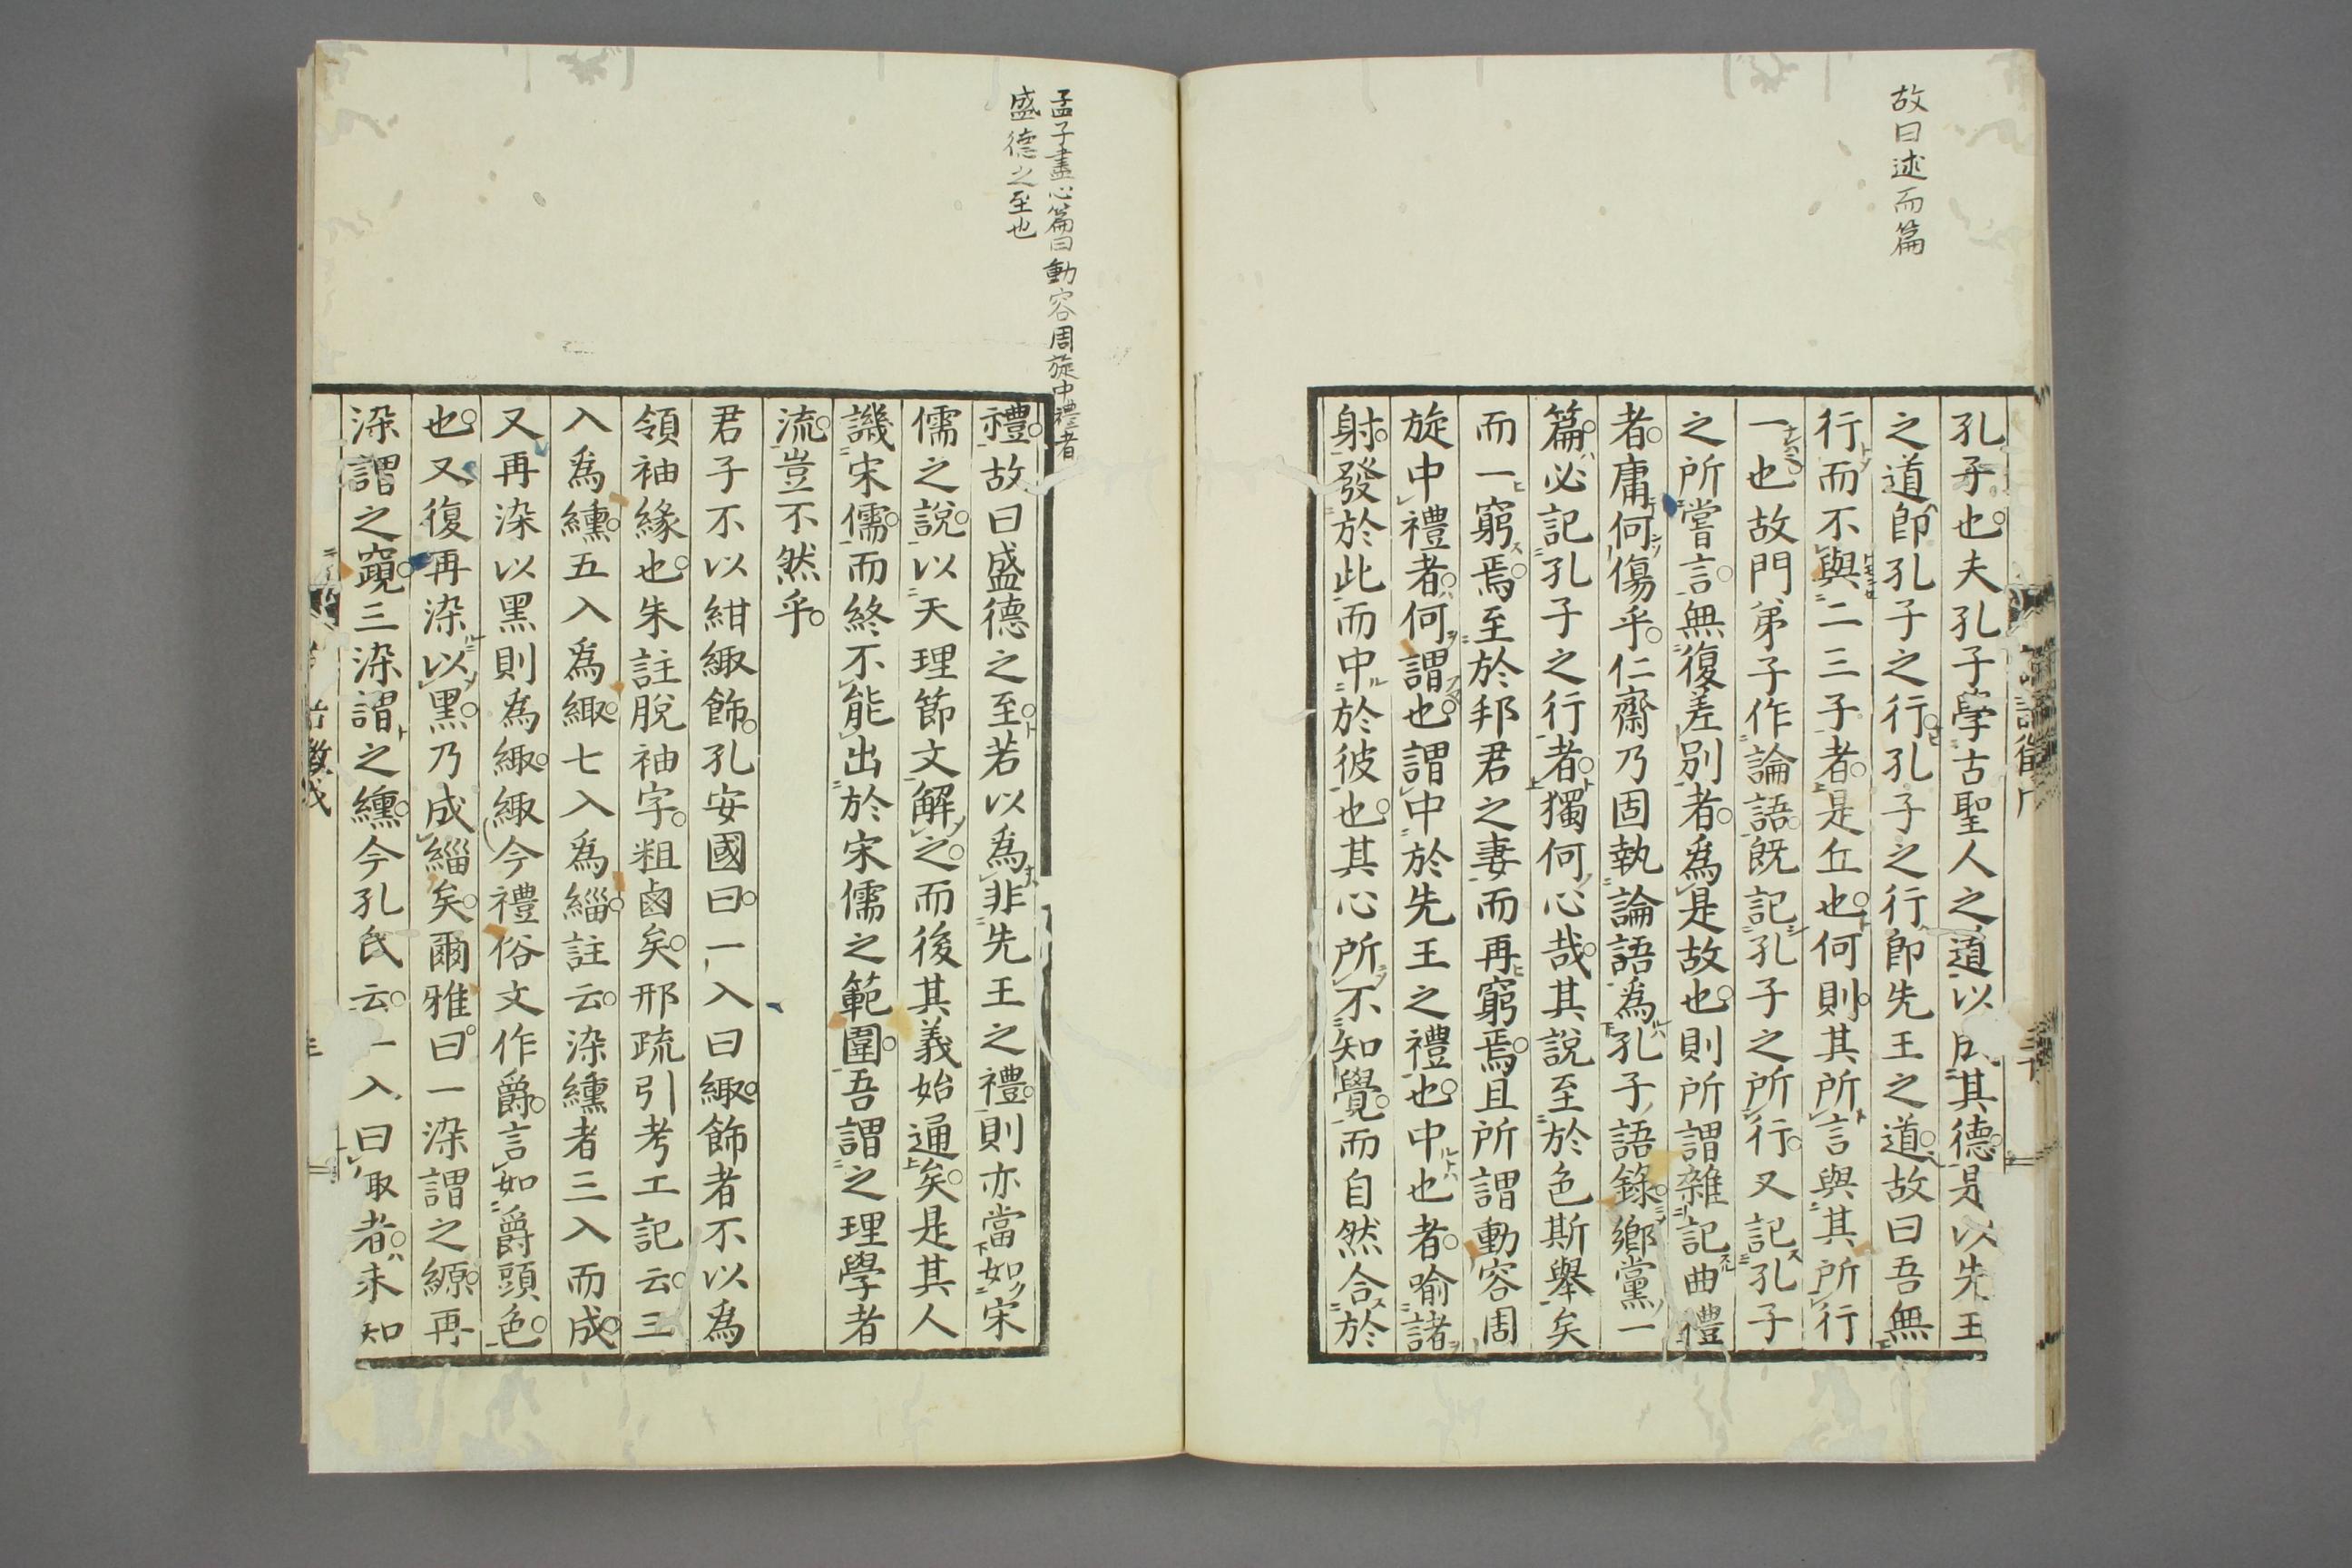 故曰述而篇
孔子也夫孔子學古聖人之道以成其德是以先王
之道卽孔子之行孔子之行卽先王之道故曰吾無
行而不與二三子者是丘也何則其所言與其所行
一也故門弟子作論語旣記孔子之所行又記孔子
之所嘗言無復差別者爲是故也則所謂雜記曲禮
者庸何傷乎仁齋乃固執論語爲孔子語錄鄉黨一
篇必記孔子之行者獨何心哉其說至於色斯舉矣
而一窮焉至於邦君之妻而再窮焉且所謂動容周
旋中禮者何謂也謂中於先王之禮也中也者喻諸
射發於此而中於彼也其心所不知覺而自然合於
孟子盡心篇曰動容周旋中禮者
盛德之至也
禮故曰盛德之至若以爲非先王之禮則亦當如宋
儒之說以天理節文解之而後其義始通矣是其人
譏宋儒而終不能出於宋儒之範圍吾謂之理學者
流豈不然乎
君子不以紺緅飾孔安國曰一入曰緅飾者不以爲
領袖緣也朱註脫袖字粗鹵矣邢疏引考工記云三
入爲纁五入爲緅七入爲緇註云染纁者三入而成
又再染以黑則爲緅緅今禮俗文作爵言如爵頭色
也又復再染以黑乃成緇矣爾雅曰一染謂之縓再
染謂之竀三染謂之纁今孔氏云一入曰緅者未知